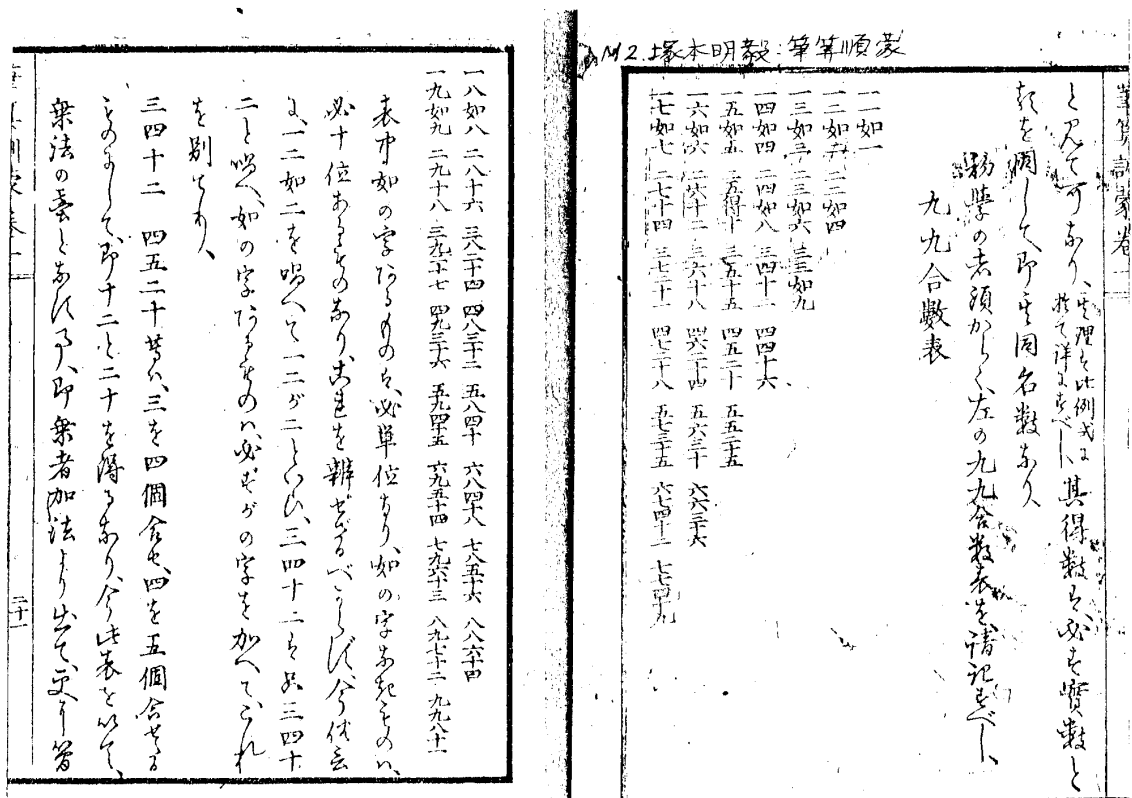 M2.塚本明毅:筆算順蒙
筆算訓蒙卷一
と見て可なり、其理は比例式に
於て詳にすべし、其得數は必す實數と
類を同して即ち同名數なり、
初學の者須からく左の九九合數表を諳記すべし、
九九合數表
一一如一
一二如二 二二如四
一三如三 二三如六 三三如九
一四如四 二四如八 三四十二 四四十六
一五如五 二五得十 三五十五 四五二十 五五二十五
一六如六 二六十二 三六十八 四六二十四 五六三十 六六三十六
一七如七 二七十四 三七二十一 四七二十八 五七三十五 六七四十二 七七四十九
一八如八 二八十六 三八二十四 四八三十二 五八四十 六八四十八 七八五十六 八八六十四
一九如九 二九十八 三九二十七 四九三十六 五九四十五 六九五十四 七九六十三 八九七十二 九九八十一
表中如の字あるもの は、必單位なり、如の字なきものハ、
必十位あるもの なり、これを辨せざるべからず、今俗言
に、一二如二を唱へて一二が二といひ、三四十二を 三四十
二と唱へ、如の字あるものハ、必ずがの字を加へて、これ
を別てり、
三四十二 四五二十 ハ、三を四個合せ、四を五個合せる
ものにして、即十二と二十を得るなり、今此表を以て、
乘法の基と なす 、即乘者加法より出て、更に簡
二十一